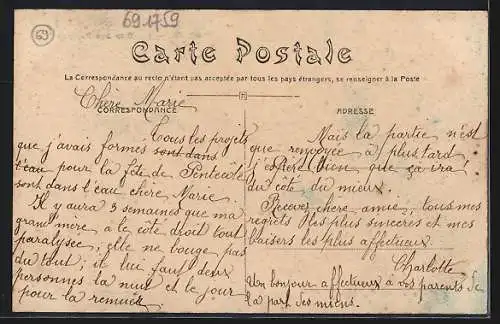 69.1759
69
Carte Postale
La Correspondance au recto n'étant pas acceptée par tous les pays étrangers, se renseigner à la Poste
Chère Marie
CORRESPONDANCE
ADRESSE
Tous les projets
que j'avais formes sont dans
l'eau pour la fête de Pentecôte
sont dans l'eau chère Marie.
Il y aura 3 semaines que ma
grand'mère a le côté droit tout
paralysée, elle ne bouge pas
du tout; il lui faut deux
personnes la nuit et le jour
pour la remuer
Mais la partie n'est
que renvoyée à plus tard
j'espère bien que ça ira
du côté du mieux.
Recevez chère amie, tous mes
regrets les plus sincères et mes
baisers les plus affectueux
Charlotte
Un bonjour affectueux à vos parents de
la part des miens.